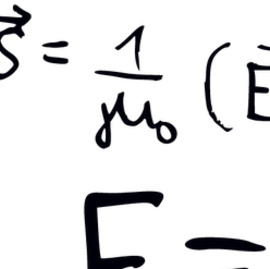 S⃗ = 1/μ₀ (E
E =